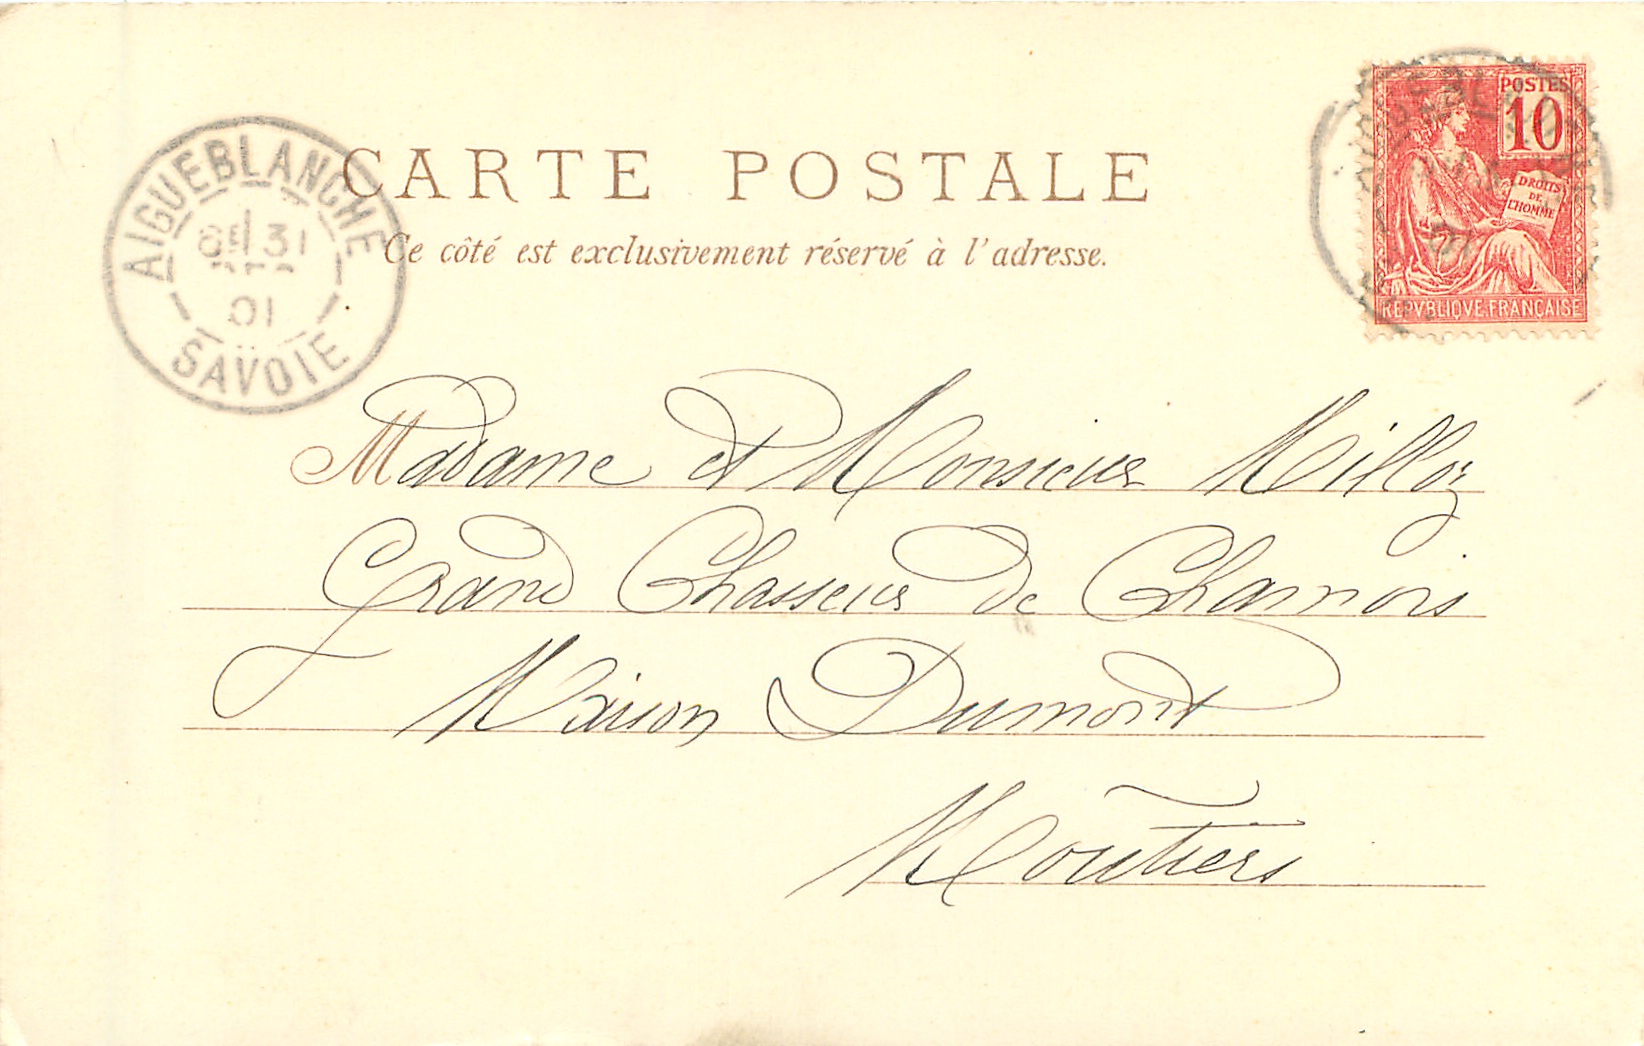 CARTE POSTALE
Ce côté est exclusivement réservé à l'adresse.
AIGUEBLANCHE
31
01
SAVOIE
POSTES
10
DROITS
DE
L'HOMME
REPVBLIQVE FRANÇAISE
Madame et Monsieur Milloz
Grand Chasseur de Chamois
Maison Dumont
Moutiers